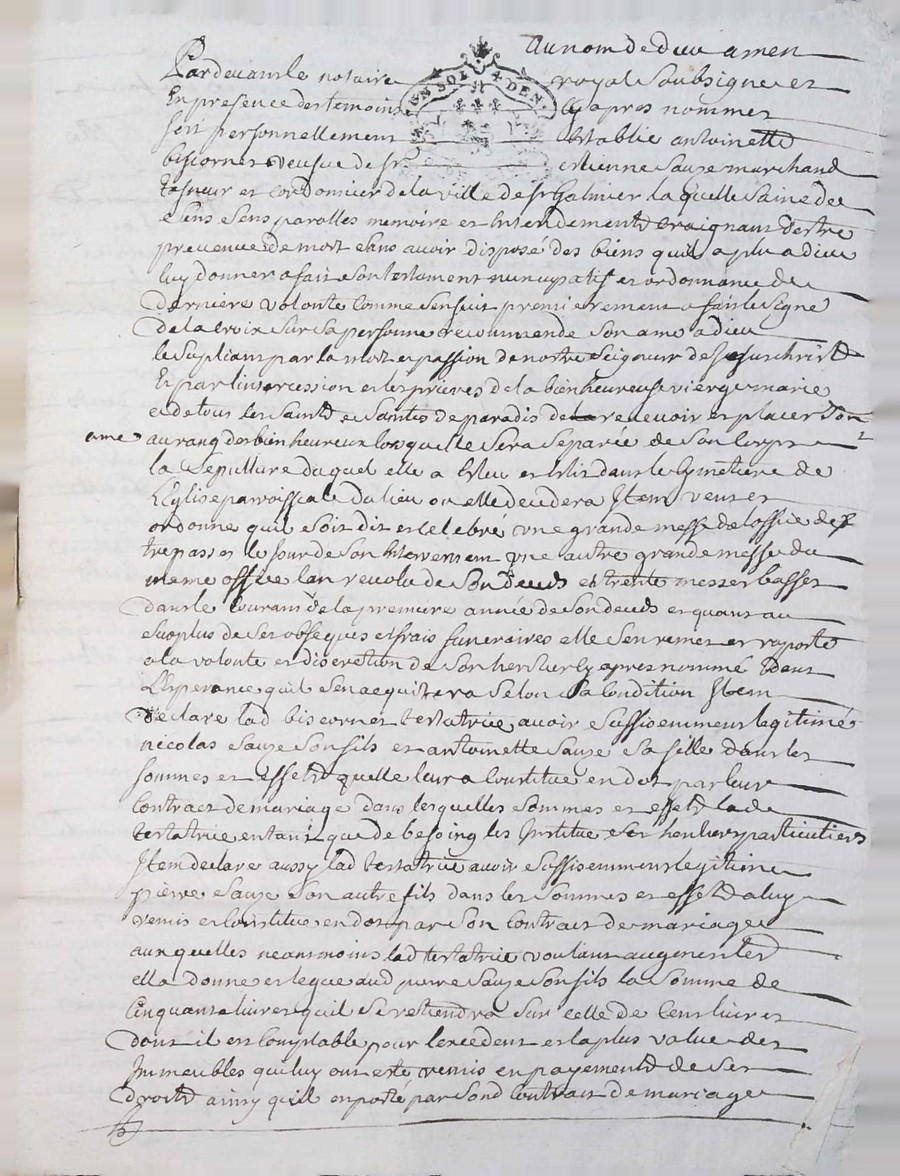 Au nom de dieu amen
Pardevant le notaire royal soubsigne et
En presence des temoins cy apres nommes
fut personnellement establie antoinette
biscornet veufve de sr estienne sauze marchand
taneur et cordonnier de la ville de st Galmier laquelle saine de
ses sens parolles memoire et entendement craignant destre
prevenue de mort sans avoir disposé des biens quil a plu a dieu
luy donner a fait son testament nuncupatif et ordonnance de
derniere volonte comme sensuit premierement a fait le signe
de la croix sur sa personne recommande son ame a dieu
le supliant par la mort et passion de nostre seigneur Jesus christ
Et par lintercession et les prieres de la bienheureuse vierge marie
et de tous les saints et saintes de paradis de recevoir et placer son
ame au rang des bienheureux lorsquelle sera separée de son corps
la sepulture duquel elle a esleu et elit dans le cymetiere de
L'Eglise parroissiale du lieu ou elle decedera Item veut et
ordonne quil soit dit et celebré une grande messe de loffice des
trepasses le jour de son enterrement une autre grande messe du
meme office lan revolu de son deceds et trente messes basses
dans le courant de la premiere année de son deceds et quant au
surplus de ses obseques et frais funeraires elle sen remet et raporte
a la volonte et discretion de son heritier cy apres nommé dans
L'esperance quil sen acquittera selon sa condition Item
declare lad biscornet testatrice avoir suffisemment legitimé
nicolas sauze son fils et antoinette sauze sa fille dans les
sommes et effets quelle leur a constitué en dot par leur
contract de mariage dans lesquelles sommes et effets lade
testatrice entant que de besoing les Institue ses heritiers particuliers
Item declare aussy lad testatrice avoir suffisemment legitimé
pierre sauze son autre fils dans les sommes et effets a luy
remis et constitue en dot par son contract de mariage
auxquelles neanmoins lad testatrice voulant augmenter
elle donne et legue aud pierre sauze son fils la somme de
Cinquante livres quil se retiendra sur celle de cent livres
dont il est comptable pour lexcedent et la plus value des
Immeubles qui luy ont esté remis en payement de ses
droits ainsy quil est porté par sond contract de mariage